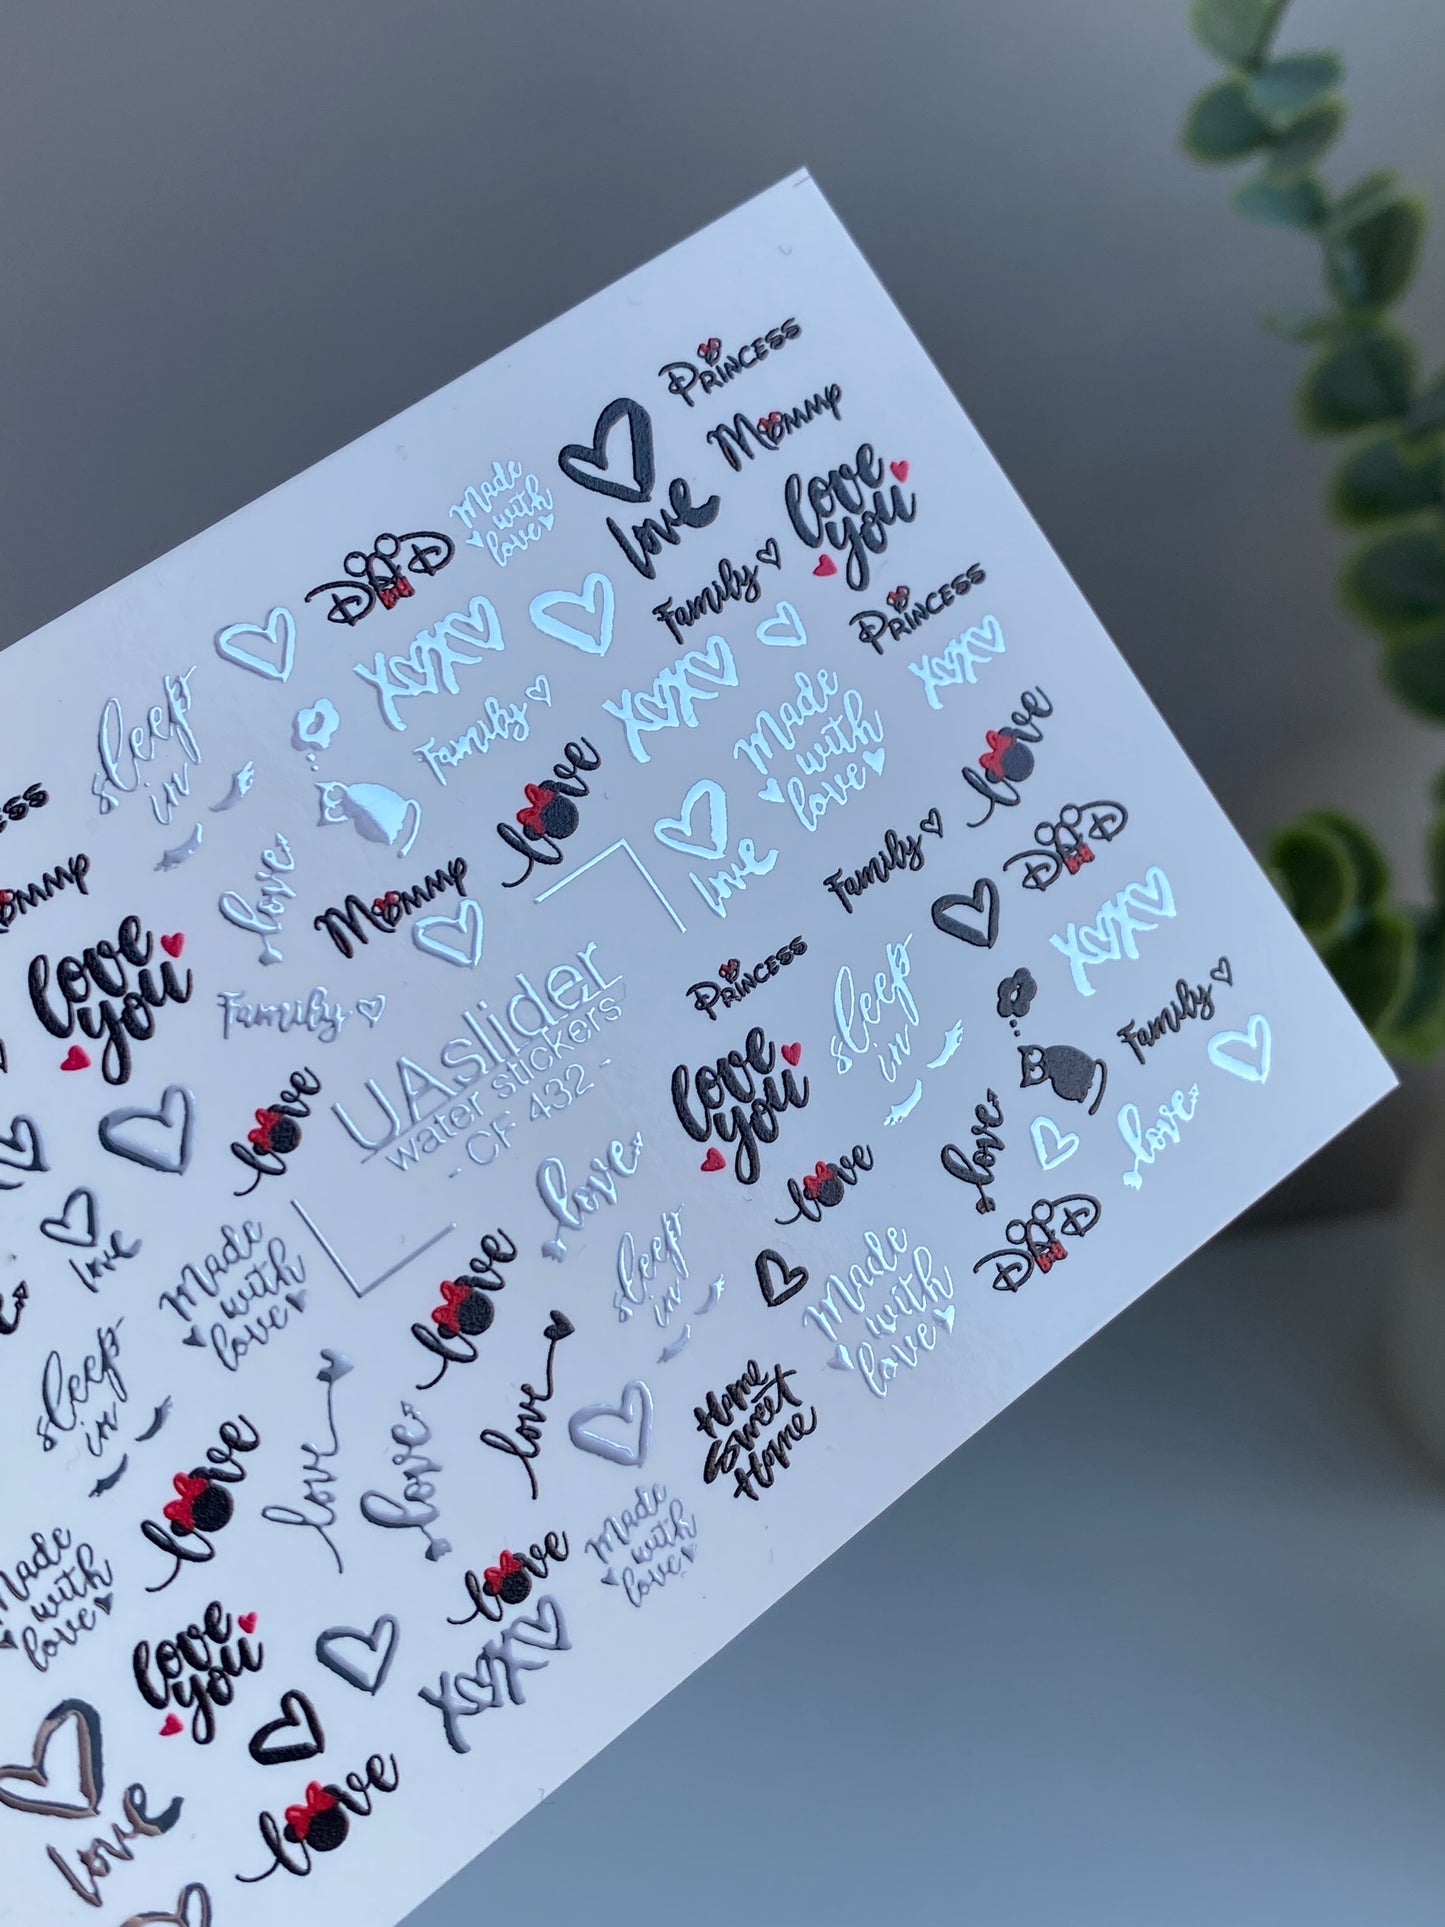 Princess
Mommy
love
Made
with
love
DAD
love
you
Family
Princess
XOXO
XOXO
XOXO
sleep
in
Family
Made
with
love
love
love
Mommy
love
love
Family
DAD
XOXO
Mommy
love
you
Family
UAslider
water stickers
- CF 432 -
Princess
sleep
in
Family
love
you
love
love
love
love
DAD
love
love
Made
with
love
sleep
in
Made
with
love
sleep
in
love
love
love
love
Home
Sweet
Home
love
Made
with
love
Made
with
love
love
love
you
XOXO
love
love